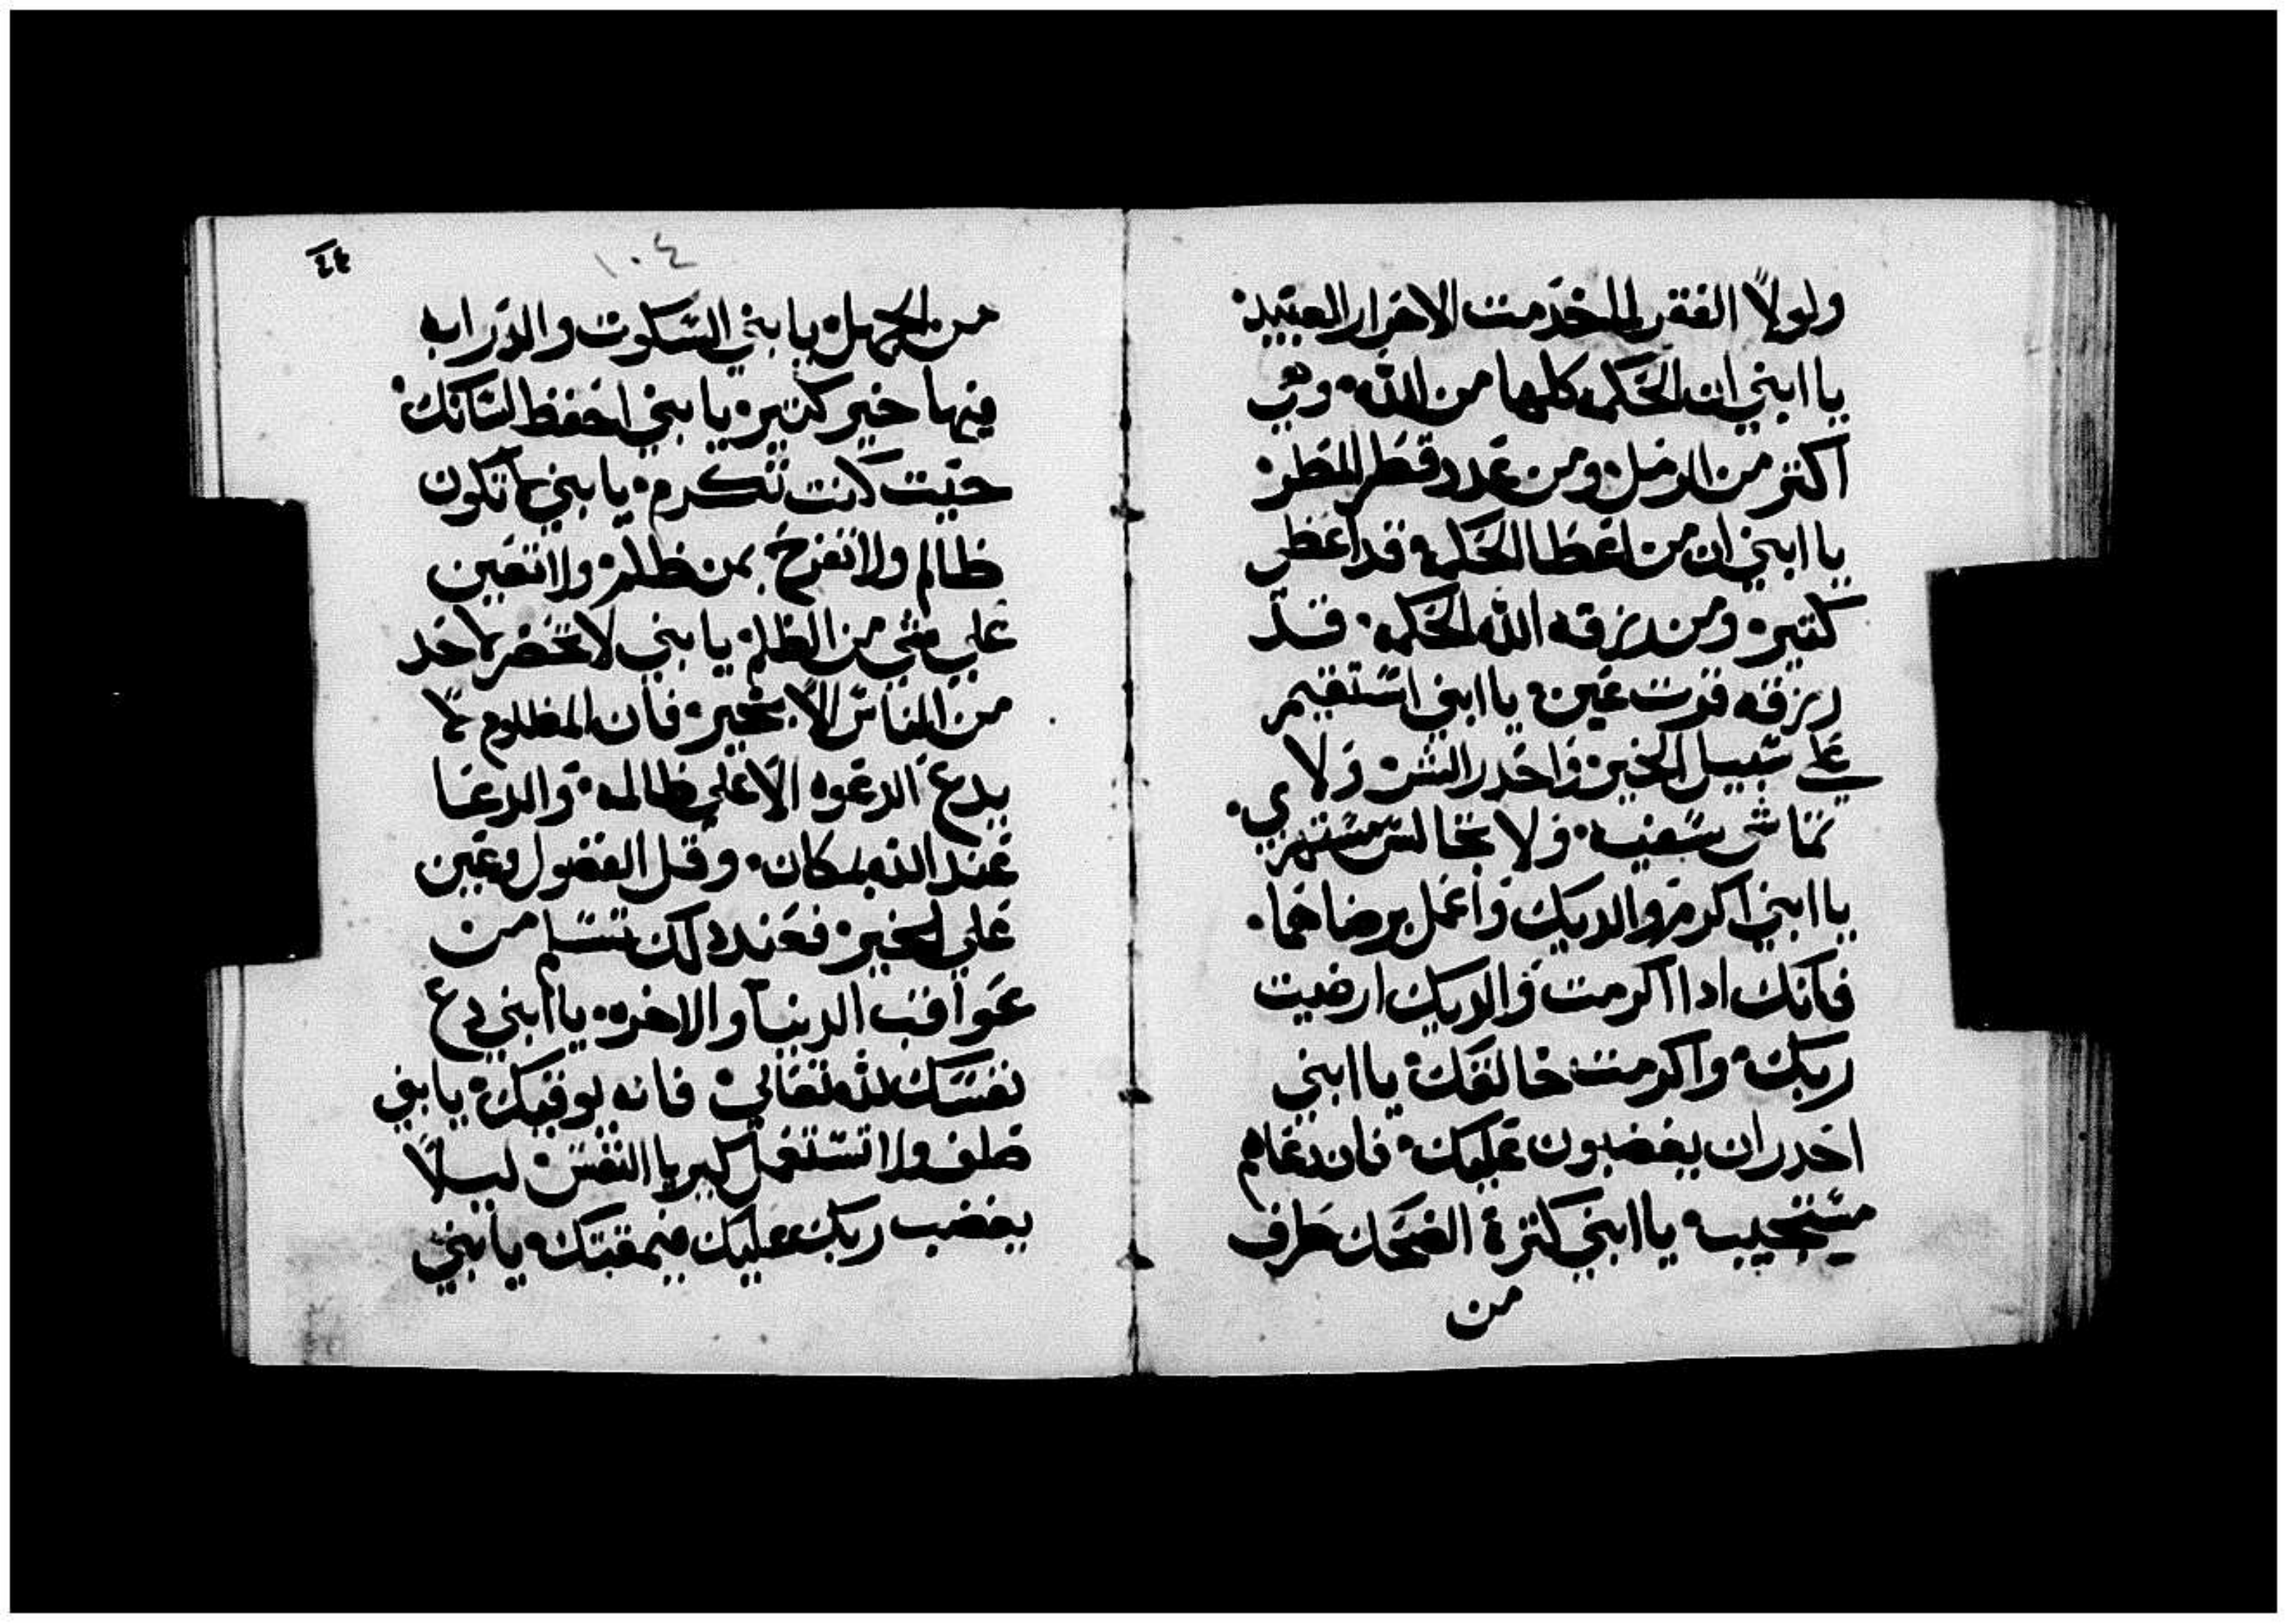 ولولا الفقر لما خدمت الاحرار العبيد.
يا ابني ان الحكمه كلها من الله. وهي
اكتر من الرمل ومن عدد قطر المطر.
يا ابني ان من اعطا الحكمه فقد اعطي
كتير. ومن رزقه الله الحكمه. فقد
رزقه قرت عين. يا ابني استقيم
علي سبيل الخير. واحدر الشر. ولا
تماشي سفيه. ولا تجالس مستهزي.
يا ابني اكرم والديك واعمل برضاهما.
فانك ادا اكرمت والديك ارضيت
ربك. واكرمت خالقك. يا ابني
احدر ان يغضبون عليك. فان دعاهم
مستجيب. يا ابني كترة الضحك طرف
من
١٠٤
٤٤
من الجهل. يا بني السكوت والدرابه
فيها خير كتير. يا بني احفظ لسانك.
حيت كنت تكرم. يا بني لا تكون
ظالم ولا تفرح بمن ظلم. ولا تعين
علي شي من الظلم. يا بني لا تحضر لاحد
من الناس الا بخير. فان المظلوم لا
يدع الدعوه الا علي ظالمه. والدعا
عند الله بمكان. وقل الفضول وعين
علي الخير. فعند دلك تسلم من
عواقب الدنيا والاخره. يا ابني دع
نفسك لله تعالي. فانه يوقيك. يا بني
ولا تستعمل كبريا النفس. ليلا
يغضب ربك عليك فيمقتك. يا بني